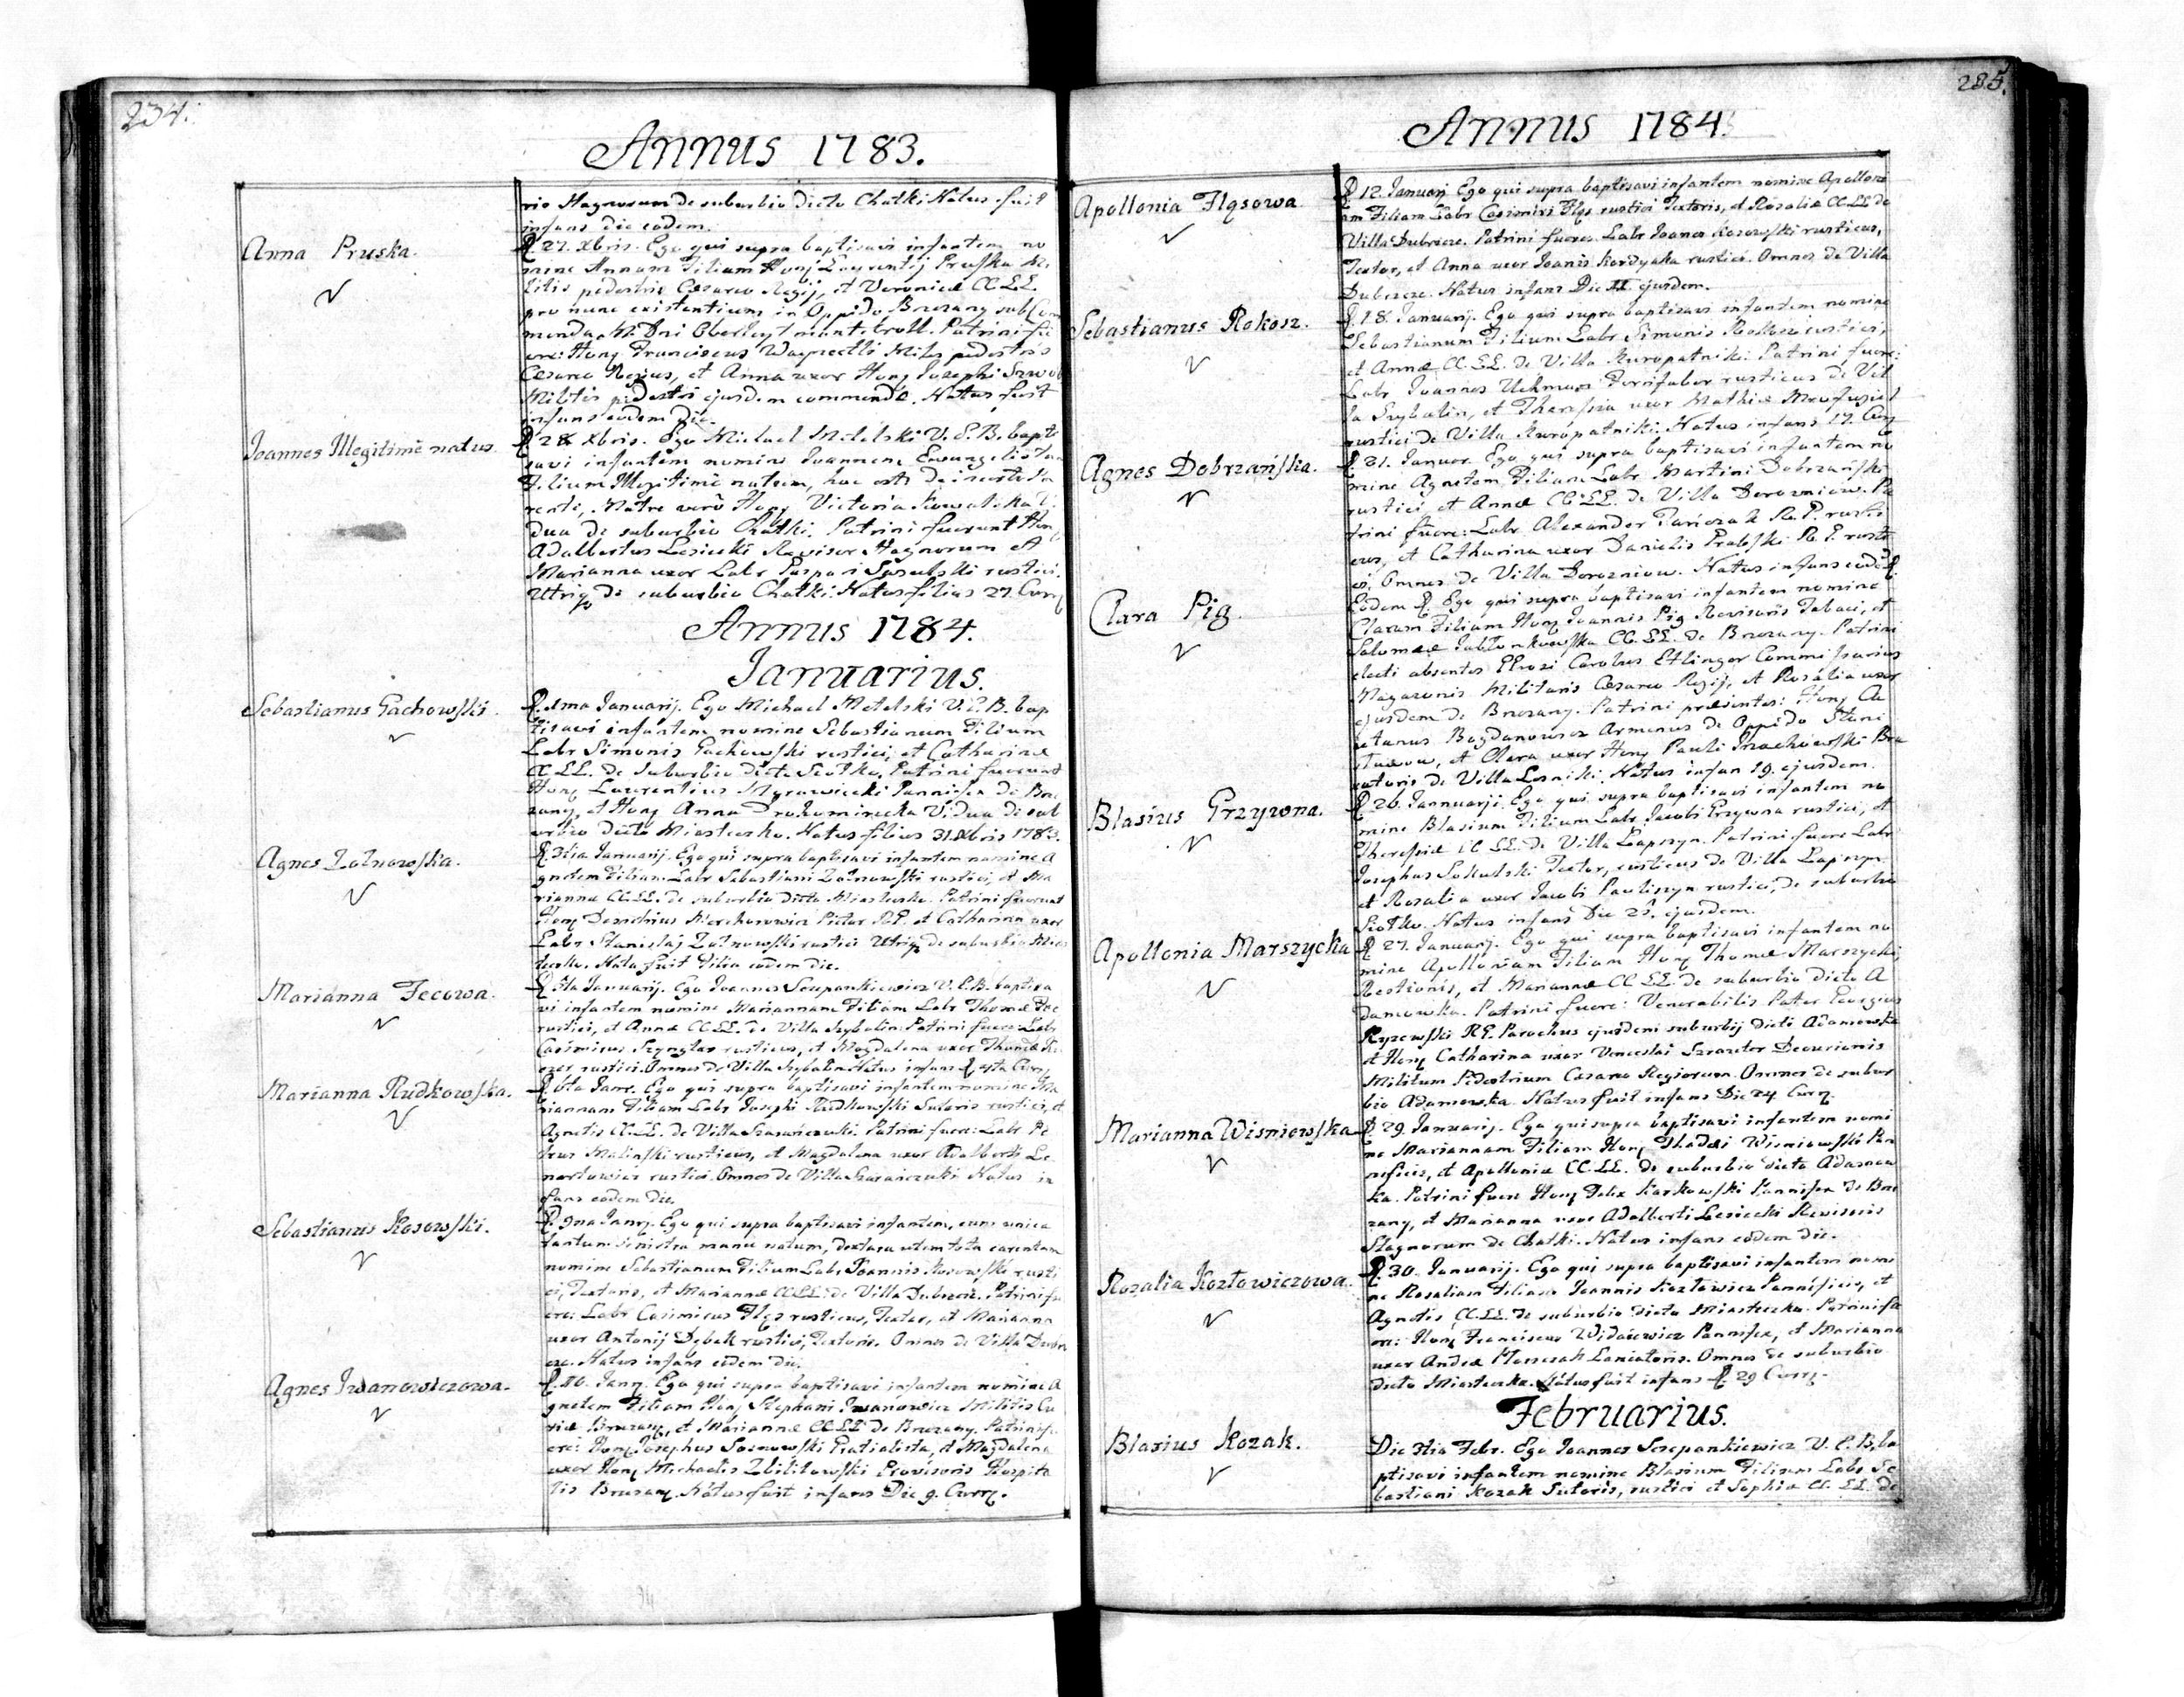 234.
Annus 1783.
rio Stagnorum de suburbio dicto Chatki Natus fuit
infans die eodem.
Anna Pruska.
27. Xbris. Ego qui supra baptisavi infantem no
mine Annam Filiam Honj Laurentij Pruska
litis pedestris Cesareo Regij, et Veronicæ CC.LL.
pro nunc existentium in Oppido Brzezany sub Com
menda Patrini fu
ere: Hong Franciscus Miles pedestris
Cesareo Regius, et Anna uxor Hong Josephi
Militis pedestris ejusdem commendæ. Natus fuit
infans eodem die.
Joannes Illegitimè natus.
28 Xbris. Ego Michael Metelski V.E.B. bapti
savi infantem nomine Joannem Evangelistam
Filium Illegitimè natum, hoc est de incerto Pa
rente, Matre verò Hong Victoria Kowalska Vi
dua de suburbio Chatki. Patrini fuerunt Hon
Adalbertus Lesiecki Revisor Stagnorum et
Marianna uxor Labr Gaspari rustici.
Utrig de suburbio Chatki. Natus filius 27. Curr
Annus 1784.
Januarius.
Sebastianus Gachowski.
1ma Januarij. Ego Michael Metelski V.E.B. bap
tisavi infantem nomine Sebastianum Filium
Labr Simonis Gachowski rustici, et Catharinæ
CC LL. de Suburbio dicto Siołko. Patrini fuerunt
Hong Laurentius Pannifex de Brze
zany, et Hong Anna Vidua de sub
urbio dicto Miasteczko. Natus filius 31. Xbris 1783.
Agnes Zołnowska.
3tia Januarij. Ego qui supra baptisavi infantem nomine A
gnetem Filiam Labr Sebastiani Zołnowski rustici, et Ma
rianna CC.LL. de suburbio dicto Miasteczko. Patrini fuerunt
Hong Pictor R.G. et Catharina uxor
Labr Stanislaj Zołnowski rustici Utrig de suburbio Mias
teczko. Nata fuit Filia eodem die.
Marianna Fecowa.
5ta Januarij. Ego Joannes Szczepankiewicz V.E.B. baptisa
vi infantem nomine Mariannam Filiam Labr Thomæ Fec
rustici, et Annæ CC.LL. de Villa Szybalin Patrini fuere Labr
Casimirus rusticus, et Magdalena uxor Thomæ
rustici. Omnes de Villa Szybalin Natus infans 4ta Curr
Marianna Rudkowska.
6ta Janr. Ego qui supra baptisavi infantem nomine Ma
riannam Filiam Labr Josephi Rudkowski Sutoris rustici, et
Agnetis CC.LL. de Villa Szarańczuki. Patrini fuere: Labr Pe
trus Malinski rusticus, et Magdalena uxor Adalberti Le
nartowicz rustici. Omnes de Villa Szarańczuki Natus in
fans eodem die.
Sebastianus Kosowski.
9na Janrj. Ego qui supra baptisavi infantem, cum unica
tantum Sinistra manu natum, dextera autem tota carentem
nomine Sebastianum Filium Labr Joannis Kosowski rusti
ci, Textoris, et Mariannæ CC.LL. de Villa Dubszcze. Patrini fu
ere: Labr Casimirus Flęs rusticus, Textor, et Marianna
uxor Antonij Dębek rustici, Textoris. Omnes de Villa Dubsz
cze. Natus infans eodem die.
Agnes Iwanowiczowa.
10. Janrj. Ego qui supra baptisavi infantem nomine A
gnetem Filiam Honj Stephani Iwanowicz Militis Cu
riæ Brzezany, et Mariannæ CC.LL de Brzezany. Patrini fu
ere: Hong Josephus Sosnowski Gratialista, et Magdalena
uxor Honj Michaelis Zbilitowski Provisoris Hospita
lis Brzezany. Natus fuit infans Die 9. Curr.
285.
Annus 1784.
Apollonia Flęsowa.
12. Januarj Ego qui supra baptisavi infantem nomine Apolloni
am Filiam Labr Casimiri Flęs rustici Textoris, et Rosaliæ CC.LL de
Villa Dubszcze. Patrini fuere. Labr Joannes Kosowski rusticus,
Textor, et Anna uxor Joanis Kordyaka rustici. Omnes de Villa
Dubszcze. Natus infans Die 11. ejusdem.
Sebastianus Rokosz.
18. Januarij. Ego qui supra baptisavi infantem nomine
Sebastianum Filium Labr Simonis Rokosz rustici,
et Annæ CC.LL. de Villa Kuropatniki. Patrini fuere:
Labr Joannes rusticus de Vil
la Szybalin, et Theressia uxor Mathiæ
rustici de Villa Kuropatniki. Natus infans 17. Curr
Agnes Dobrzańska.
21. Januar. Ego qui supra baptisavi infantem no
mine Agnetem Filiam Labr Martini Dobrzański
rustici, et Annæ CC.LL. de Villa Dorozniow. Pa
trini fuere: Labr Alexander R.G. rusti
cus, et Catharina uxor Danielis R.G. rusti
ci. Omnes de Villa Dorozniow. Natus infans eodem
Clara Pig.
Eodem Ego qui supra baptisavi infantem nomine
Claram Filiam Honj Joannis Pig Revisoris Tabaci, et
Salomeæ Jabłonkowska CC.LL. de Brzezany. Patrini
electi absentes Carolus Etlinger Commissarius
Magazonis Militaris Cæsareo Regij, et Rosalia uxor
ejusdem de Brzezany. Patrini præsentes: Hong Ca
jetanus Bogdanowicz Armenus de Oppido Stani
sławow, et Clara uxor Hong Pauli
xatoris de Villa Lesniki. Natus infan 19. ejusdem.
Blasius Grzyzona.
26. Jannuarji Ego qui supra baptisavi infantem no
mine Blasium Filium Labr Jacobi rustici, et
Theressiæ CC LL. de Villa Łapszyn. Patrini fuere Labr
Josephus Sokulski Textor, rusticus de Villa Łapszyn
et Rosalia uxor Jacobi Pauliszyn rustici, de suburbio
Siołko. Natus infans Die 25. ejusdem.
Apollonia Marszycka
27. Januarj. Ego qui supra baptisavi infantem no
mine Apolloniam Filiam Honj Thomæ Marszycki
Restionis, et Mariannæ CC LL. de suburbio dicto A
damowka. Patrini fuere: Venerabilis Pater Georgius
R.G. Parochus ejusdem suburbij dicti Adamowka
et Honj Catharina uxor Venceslai Decurionis
Militum Pedestrium Cesareo Regiorum. Omnes de subur
bio Adamowka. Natus fuit infans Die 24 Curr.
Marianna Wisniewska
29. Januarij. Ego qui supra baptisavi infantem nomi
ne Mariannam Filiam Honj Thadæi Wisniowski Pan
nificis, et Apolloniæ CC.LL. de suburbio dicto Adamow
ka. Patrini fuere Honj Felix Karkowski Pannifex de Brze
zany, et Marianna uxor Adalberti Lesiecki Revisoris
Stagnorum de Chatki. Natus infans eodem die.
Rosalia Kozłowiczowa.
30. Januarij. Ego qui supra baptisavi infantem nomi
ne Rosaliam Filiam Joannis Kozłowicz Pannificis, et
Agnetis CC.LL. de suburbio dicto Miasteczko. Patrini fu
ere: Honj Franciscus Pannifex, et Marianna
uxor Andreæ Laniatoris. Omnes de suburbio
dicto Miasteczko. Natus fuit infans 29 Curr.
Februarius.
Blasius Kozak.
Die 3tia Febr. Ego Joannes Szczepankiewicz V.E.B. ba
ptisavi infantem nomine Blasium Filium Labr Se
bastiani Kozak Sutoris, rustici et Sophiæ CC.LL. de